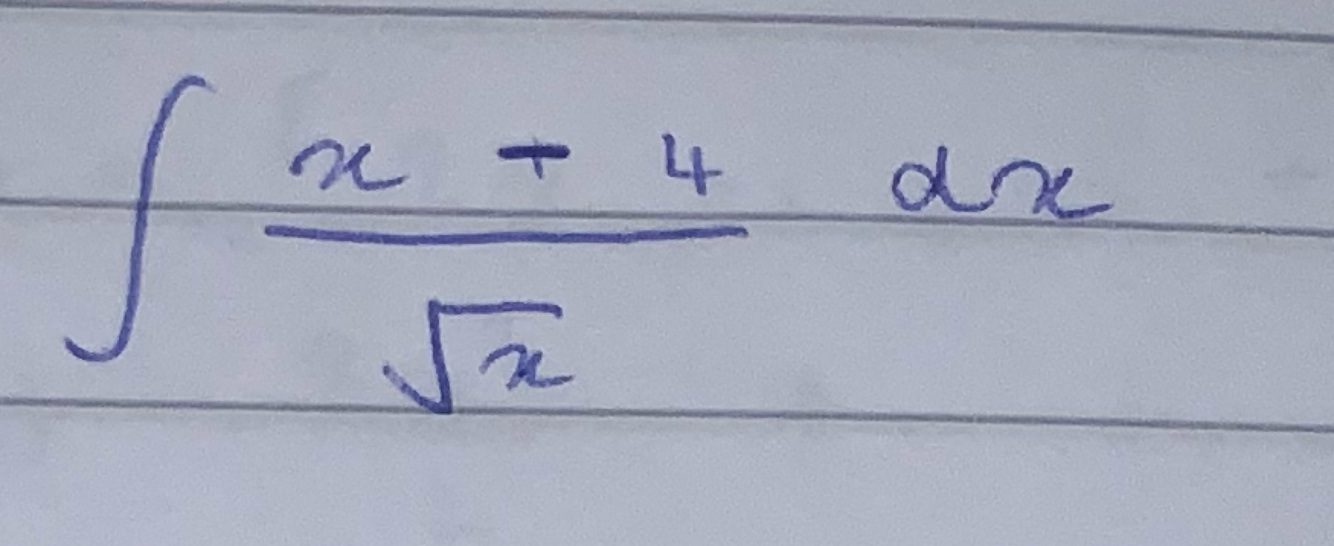 ∫ (x + 4)/√x dx